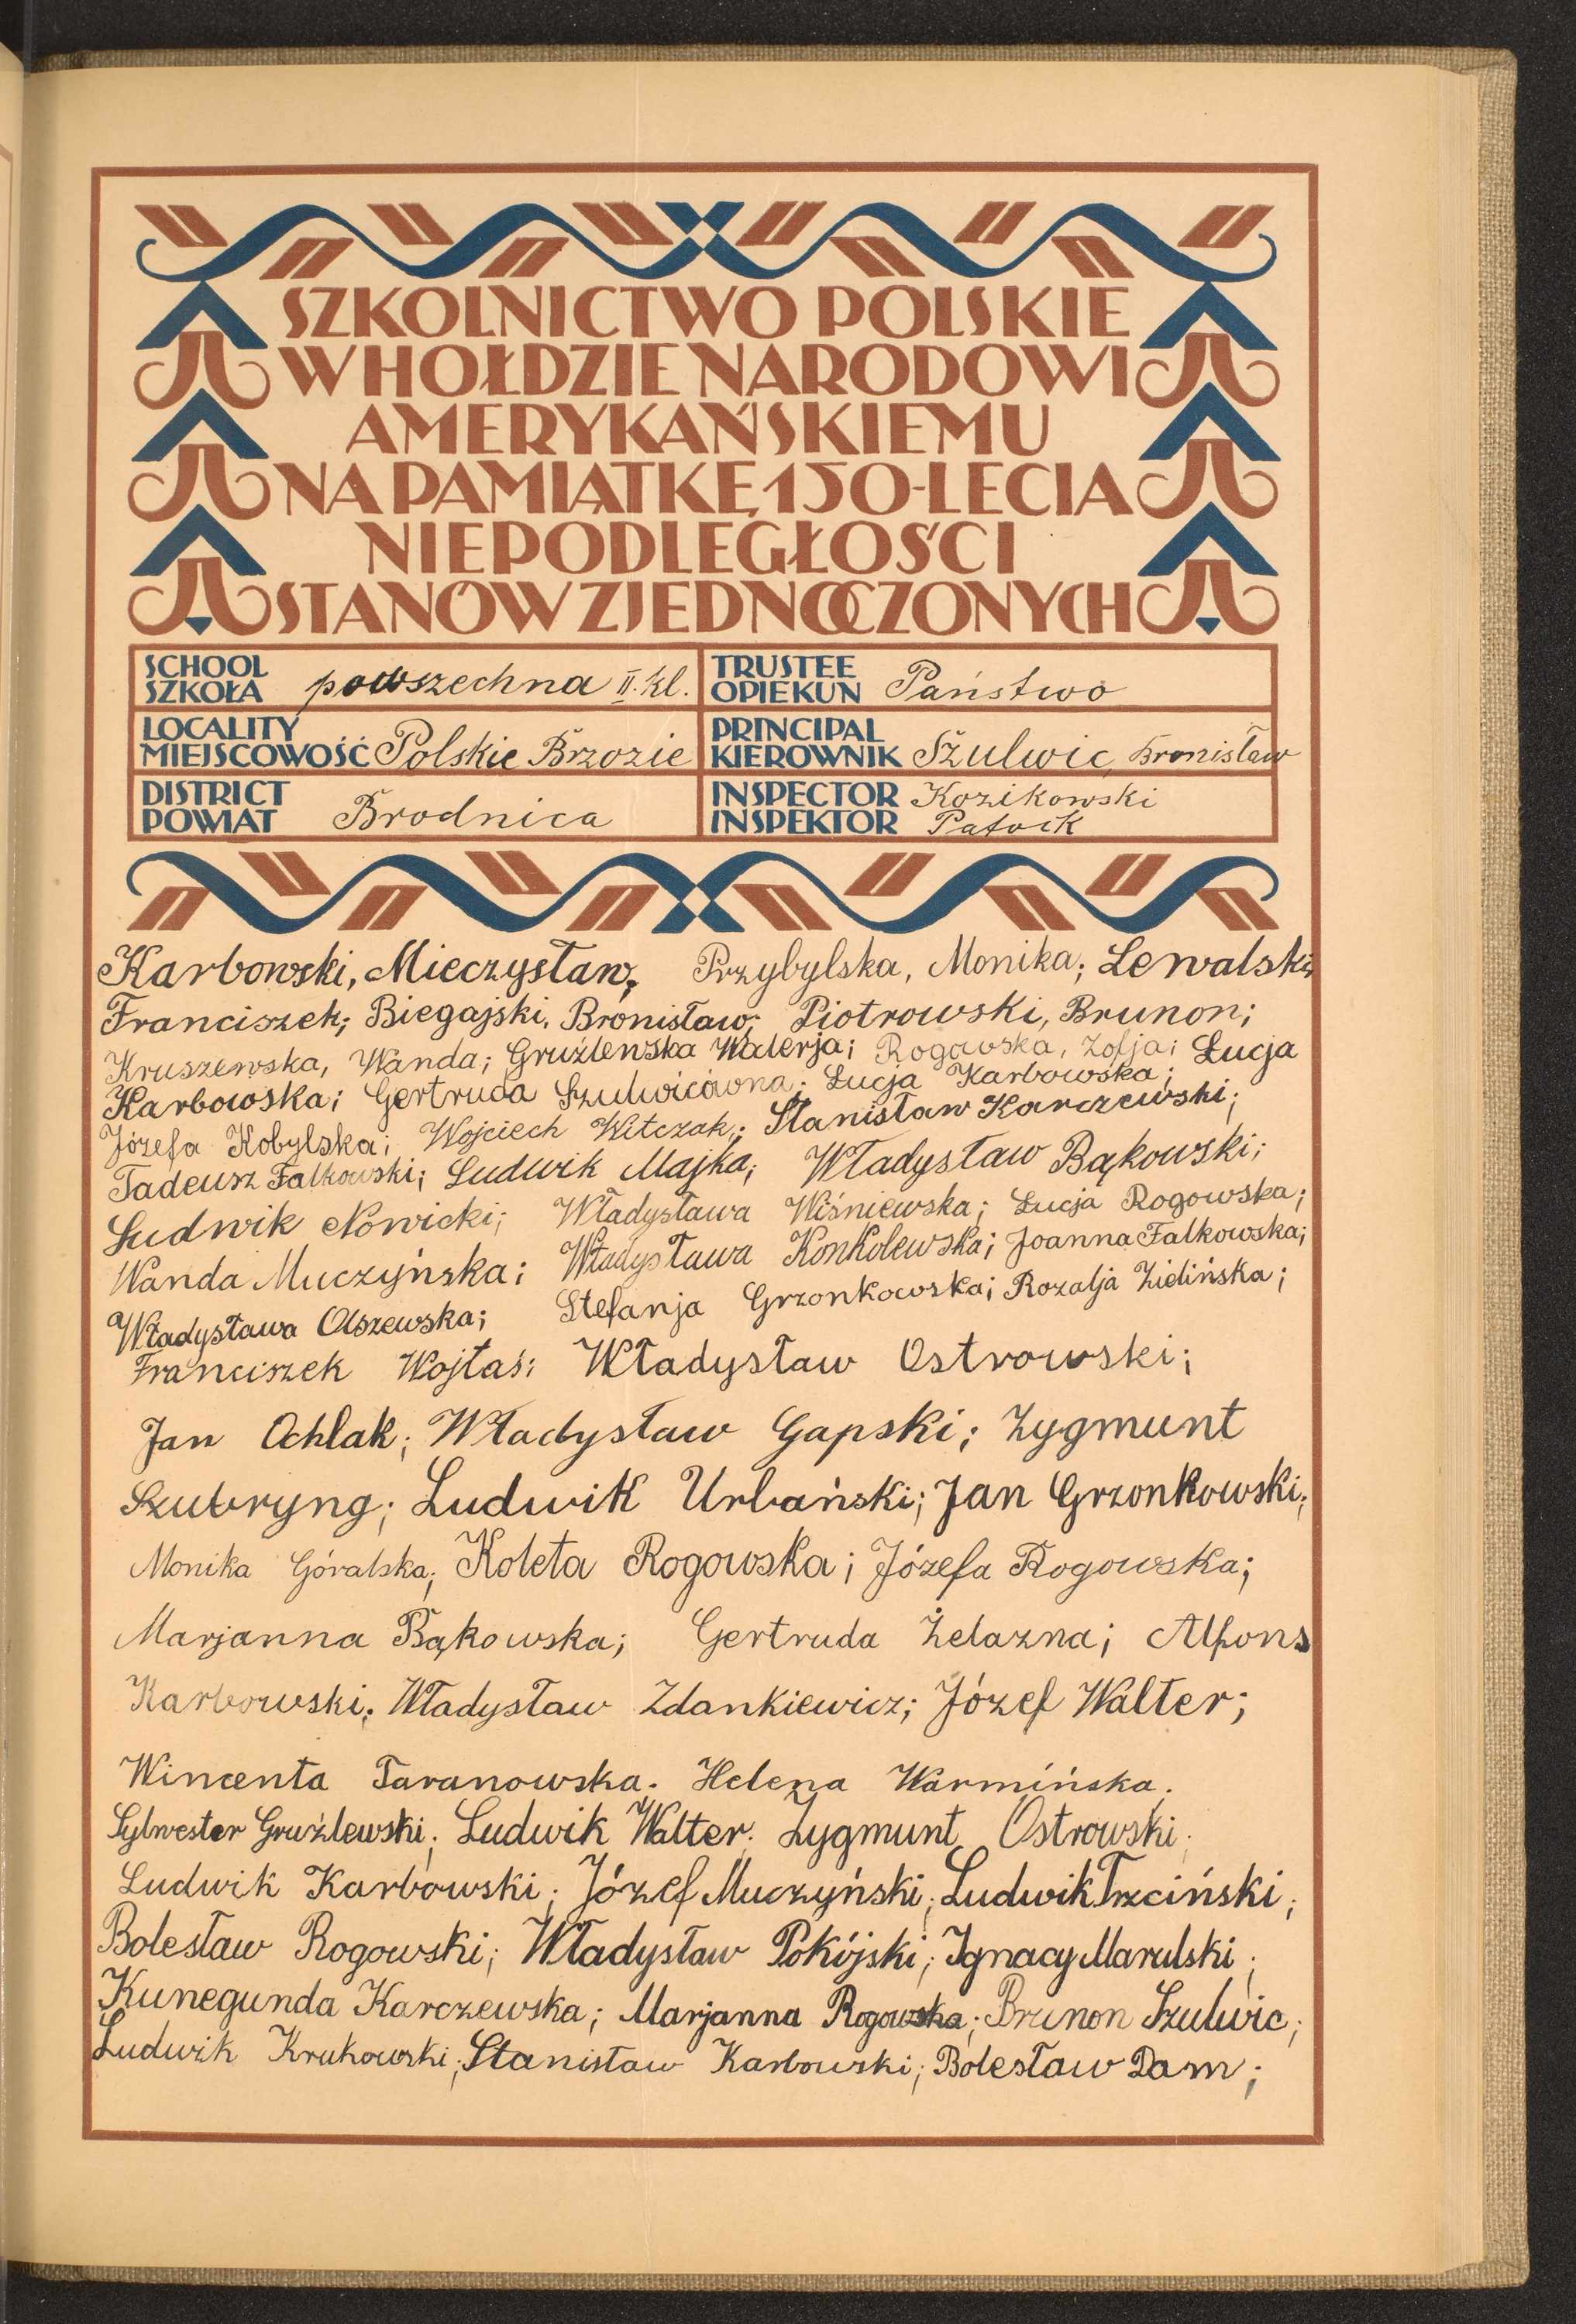 SZKOLNICTWO POLSKIE
W HOŁDZIE NARODOWI
AMERYKAŃSKIEMU
NA PAMIĄTKĘ 150-LECIA
NIEPODLEGŁOŚCI
STANÓW ZJEDNOCZONYCH
SCHOOL
SZKOŁA powszechna II. kl.
TRUSTEE
OPIEKUN Państwo
LOCALITY
MIEJSCOWOŚĆ Polskie Brzozie
PRINCIPAL
KIEROWNIK Szulwic, Bronisław
DISTRICT
POWIAT Brodnica
INSPECTOR Kozikowski
INSPEKTOR Patock
Karbowski, Mieczysław; Przybylska, Monika; Lewalski,
Franciszek; Biegajski, Bronisław; Piotrowski, Brunon;
Kruszewska, Wanda; Gruźlewska Walerja; Rogowska, Zofja; Łucja
Karbowska; Gertruda Szulwicówna; Łucja Karbowska;
Józefa Kobylska; Wojciech Witczak; Stanisław Karczewski;
Tadeusz Falkowski; Ludwik Majka; Władysław Bąkowski;
Ludwik Nowicki; Władysława Wiśniewska; Łucja Rogowska;
Wanda Muczyńska; Władysława Konkolewska; Joanna Falkowska;
Władysława Olszewska; Stefanja Grzonkowska; Rozalja Zielińska;
Franciszek Wojtaś; Władysław Ostrowski;
Jan Ochlak; Władysław Gapski; Zygmunt
Szubryng; Ludwik Urbański; Jan Grzonkowski;
Monika Góralska; Koleta Rogowska; Józefa Rogowska;
Marjanna Bąkowska; Gertruda Żelazna; Alfons
Karbowski; Władysław Zdankiewicz; Józef Walter;
Wincenta Taranowska. Helena Warmińska.
Sylwester Gruźlewski; Ludwik Walter; Zygmunt Ostrowski;
Ludwik Karbowski; Józef Muczyński; Ludwik Trzciński;
Bolesław Rogowski; Władysław Pokójski; Ignacy Marulski;
Kunegunda Karczewska; Marjanna Rogowska; Brunon Szulwic;
Ludwik Krukowski; Stanisław Karbowski; Bolesław Dam;